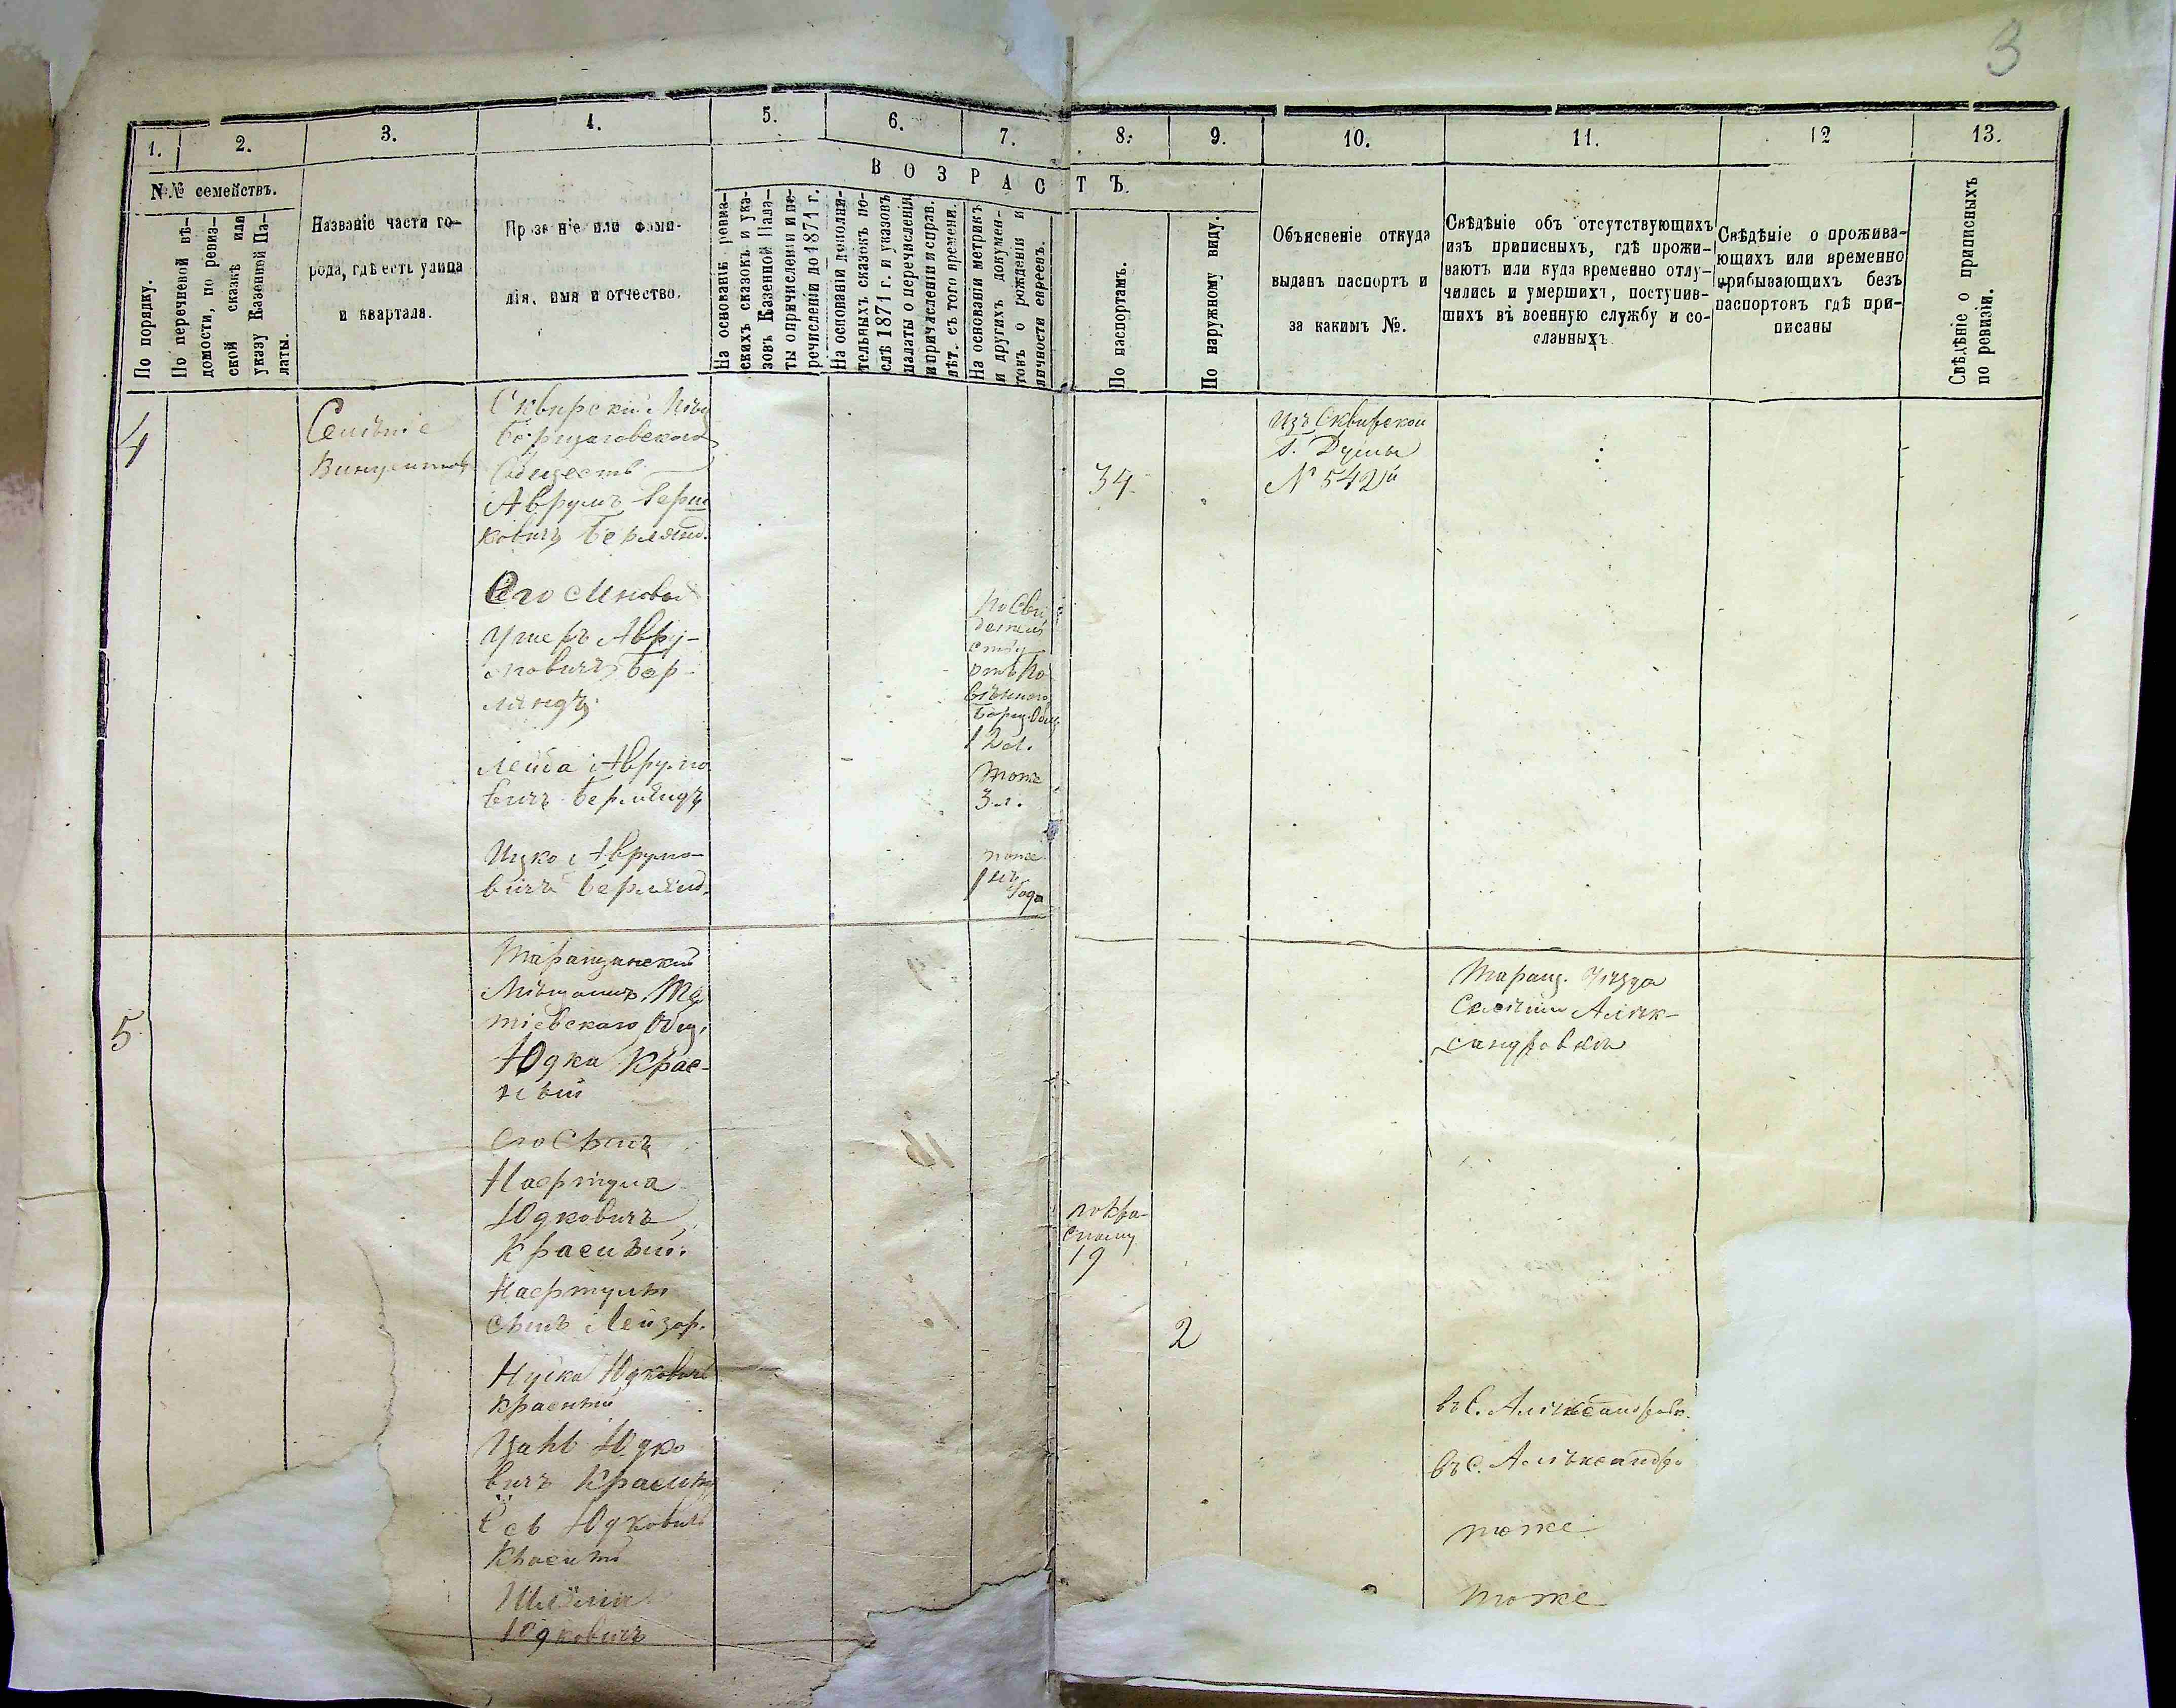 3
1.
2.
3.
4.
5.
6.
7.
8.
9.
10.
11.
12
13.
№№ семействъ.
По порядку.
По перечневой вѣ-
домости, по ревиз-
ской сказкѣ или
указу Казенной Па-
латы.
Названіе части го-
рода, гдѣ есть улица
и квартала.
Прозваніе или фами-
лія, имя и отчество.
ВОЗРАСТЪ.
На основаніи ревиз-
скихъ сказокъ и ука-
зовъ Казенной Пала-
ты о причисленіи и пе-
речисленіи до 1871 г.
На основаніи дополни-
тельныхъ сказокъ по-
слѣ 1871 г. и указовъ
палаты о перечисленіи
и причисленіи и справ.
лѣт. съ того времени.
На основаніи метрикъ
и другихъ докумен-
товъ о рожденіи и
личности евреевъ.
По паспортамъ.
По наружному виду.
Объясненіе откуда
выданъ паспортъ и
за какимъ №.
Свѣдѣніе объ отсутствующихъ
изъ приписныхъ, гдѣ прожи-
ваютъ или куда временно отлу-
чились и умершихъ, поступив-
шихъ въ военную службу и со-
сланныхъ
Свѣдѣніе о прожива-
ющихъ или временно
прибывающихъ безъ
паспортовъ гдѣ при-
писаны
Свѣдѣніе о приписныхъ
по ревизіи.
4
Селѣніе
Сквирскій Мѣщ
Борщаговскаго
Обществ
Аврумъ Берш
ковичъ Берлянд.
34
Изъ Сквирской
г. Думы
№ 542й
Его Синовья
Ушеръ Авру-
мовичъ Бер-
ляндъ
по Сви
детель
ству
12 л.
Лейба Аврумо
вичъ Берляндъ
тоже
3 л.
Ицко Аврумо-
вичъ Берлянд.
тоже
1 года
5
Таращанскій
Мѣщанинъ Те
тіевскаго Общ.
Юдка Крас-
ный
Таращ. Уѣзда
Селѣніи Алѣк-
сандровки
Его Сынъ
Нафтула
Юдковичъ
Красный
19
Нафтулы
сынъ Лейзор.
2
Юдковичъ
Красный
въ С. Алѣксандровк.
Юдко
вичъ Красный
въ С. Алѣксандро
Юдковичъ
Красный
тоже
Шлёма
Юдковичъ
тоже